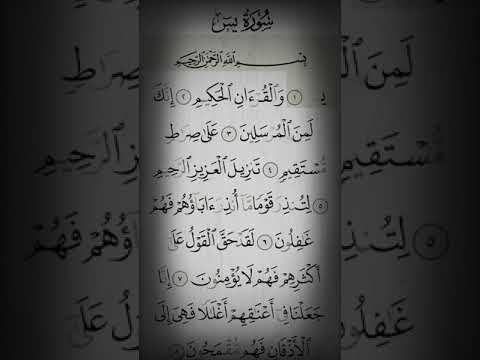 سُورَةُ يسٓ
بِسْمِ ٱللَّهِ ٱلرَّحْمَٰنِ ٱلرَّحِيمِ
يسٓ ١ وَٱلْقُرْءَانِ ٱلْحَكِيمِ ٢ إِنَّكَ
لَمِنَ ٱلْمُرْسَلِينَ ٣ عَلَىٰ صِرَٰطٍ
مُّسْتَقِيمٍ ٤ تَنزِيلَ ٱلْعَزِيزِ ٱلرَّحِيمِ
٥ لِتُنذِرَ قَوْمًا مَّآ أُنذِرَ ءَابَآؤُهُمْ فَهُمْ
غَٰفِلُونَ ٦ لَقَدْ حَقَّ ٱلْقَوْلُ عَلَىٰٓ
أَكْثَرِهِمْ فَهُمْ لَا يُؤْمِنُونَ ٧ إِنَّا
جَعَلْنَا فِىٓ أَعْنَٰقِهِمْ أَغْلَٰلًا فَهِىَ إِلَى
ٱلْأَذْقَانِ فَهُم مُّقْمَحُونَ ٨